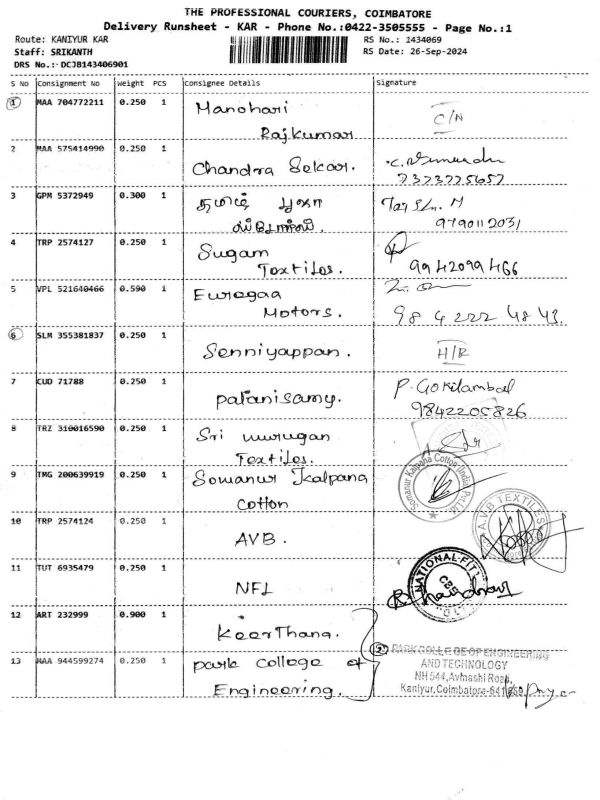 THE PROFESSIONAL COURIERS, COIMBATORE
Delivery Runsheet - KAR - Phone No.:0422-3505555 - Page No.:1
Route: KANIYUR KAR RS No.: 1434069
Staff: SRIKANTH RS Date: 26-Sep-2024
DRS No.: DCJB143406901
S No Consignment No Weight PCS Consignee Details Signature
1 MAA 704772211 0.250 1 Manohari C/N
Rajkumar
2 MAA 575414990 0.250 1 Chandra Sekar.
3 GPM 5372949 0.300 1 தமிழ்
9790112031
4 TRP 2574127 0.250 1 Sugam
Textiles. 9942099466
5 VPL 521640466 0.590 1 Euregaa
Motors. 98 4 222 4843.
6 SLM 355381837 0.250 1 Senniyappan. H/R
7 CUD 71788 0.250 1 palanisamy. P. Gokilambal
9842205826
8 TRZ 310016590 0.250 1 Sri murugan
Textiles.
9 TMG 200639919 0.250 1 Somanur Kalpana Somanur Kalpana Cotton (India) Pvt Ltd
cotton
10 TRP 2574124 0.250 1 AVB. A.V.B TEXTILES
11 TUT 6935479 0.250 1 NFL NATIONAL FIT
12 ART 232999 0.900 1 Keerthana.
13 MAA 944599274 0.250 1 park college of 2 PARK COLLEGE OF ENGINEERING
Engineering. AND TECHNOLOGY
NH 544, Avinashi Road,
Kaniyur, Coimbatore-641 659.